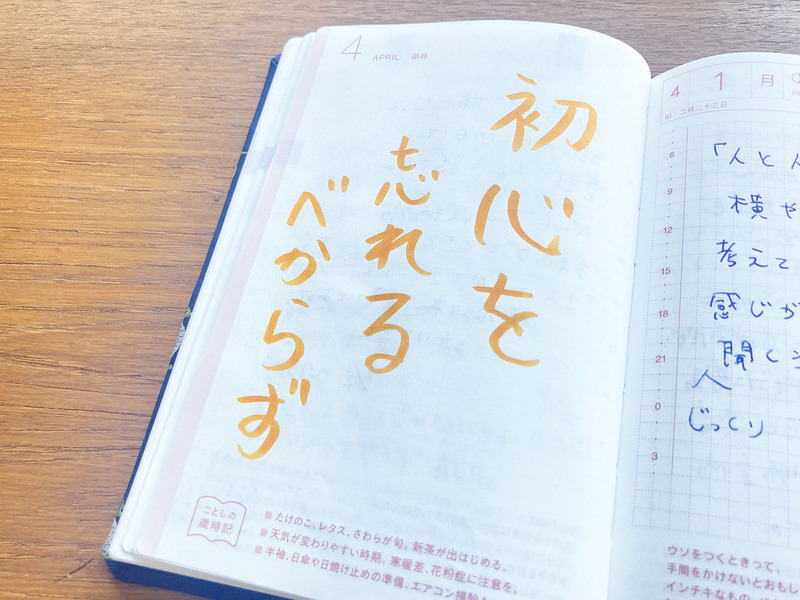 4 APRIL 卯月
初心を
忘れる
べからず
ことしの
歳時記
■ たけのこ、レタス、さわらが旬。新茶が出はじめる。
■ 天気が変わりやすい時期。寒暖差、花粉症に注意を。
■ 半袖、日傘や日焼け止めの準備、エアコン掃除
4 1 月
旧 二月二十三日
6
9
12
15
18
21
0
3
「人と人
横や
考えて
感じが
聞く
人
じっくり
ウソをつくときって、
手間をかけないとおもし
インチキなもの